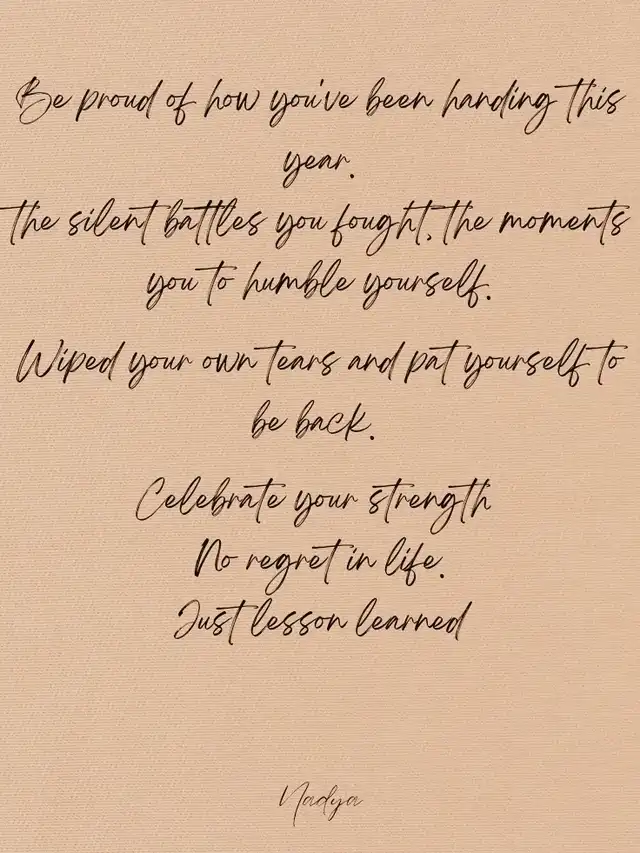 Be proud of how you've been handing this
year.
the silent battles you fought, the moments
you to humble yourself.
Wiped your own tears and pat yourself to
be back.
Celebrate your strength
No regret in life.
Just lesson learned
Nadya